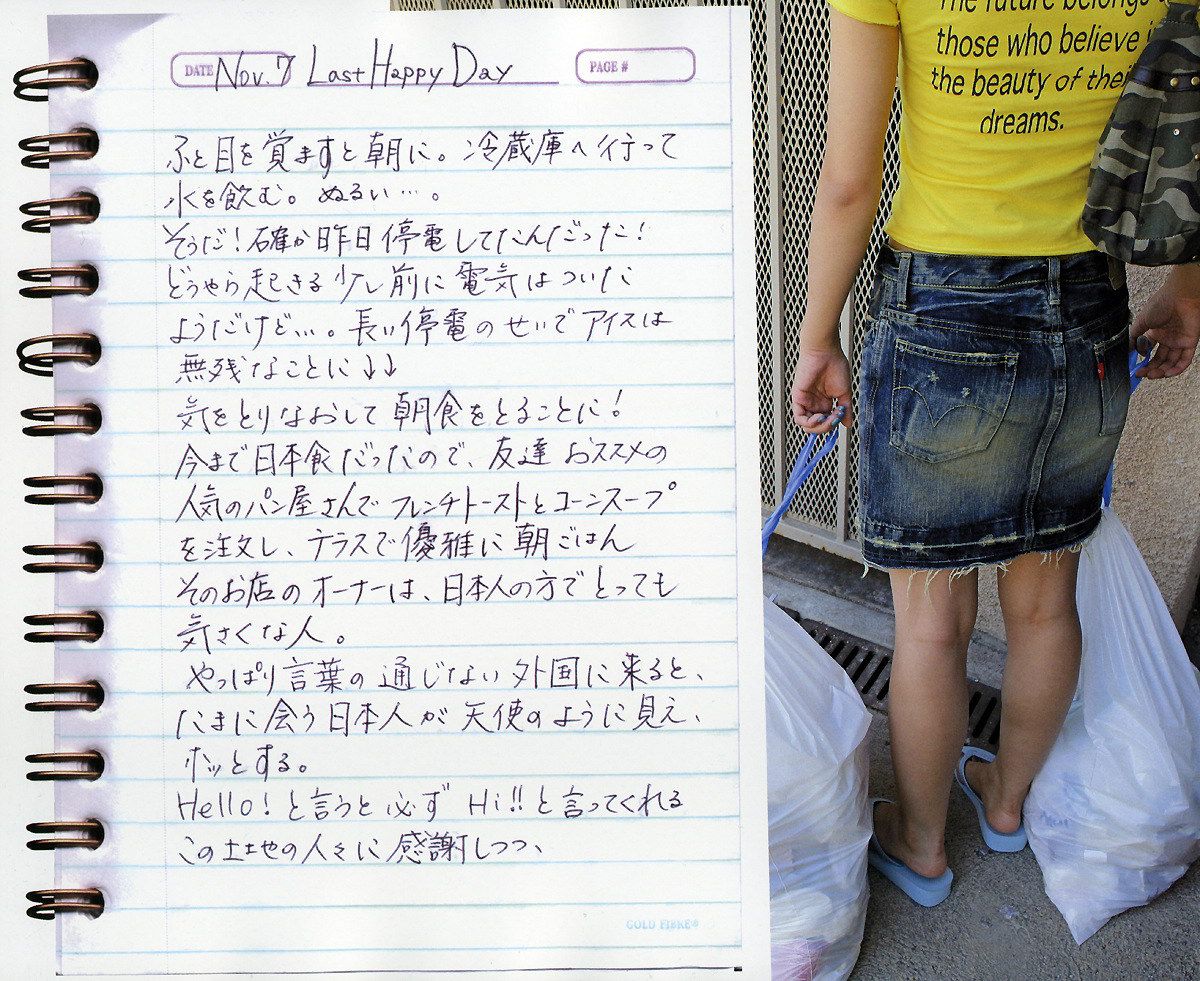 DATE Nov. 7 Last Happy Day PAGE #
ふと目を覚ますと朝に。冷蔵庫へ行って
水を飲む。ぬるい…。
そうだ!確か昨日停電してたんだった!
どうやら起きる少し前に電気はついた
ようだけど…。長い停電のせいでアイスは
無残なことに↓↓
気をとりなおして朝食をとることに!
今まで日本食だったので、友達おススメの
人気のパン屋さんでフレンチトーストとコーンスープ
を注文し、テラスで優雅に朝ごはん
そのお店のオーナーは、日本人の方でとっても
気さくな人。
やっぱり言葉の通じない外国に来ると、
たまに会う日本人が天使のように見え、
ホッとする。
Hello!と言うと必ずHi!!と言ってくれる
この土地の人々に感謝しつつ、
GOLD FIBRE®
The future belongs
those who believe i
the beauty of their
dreams.